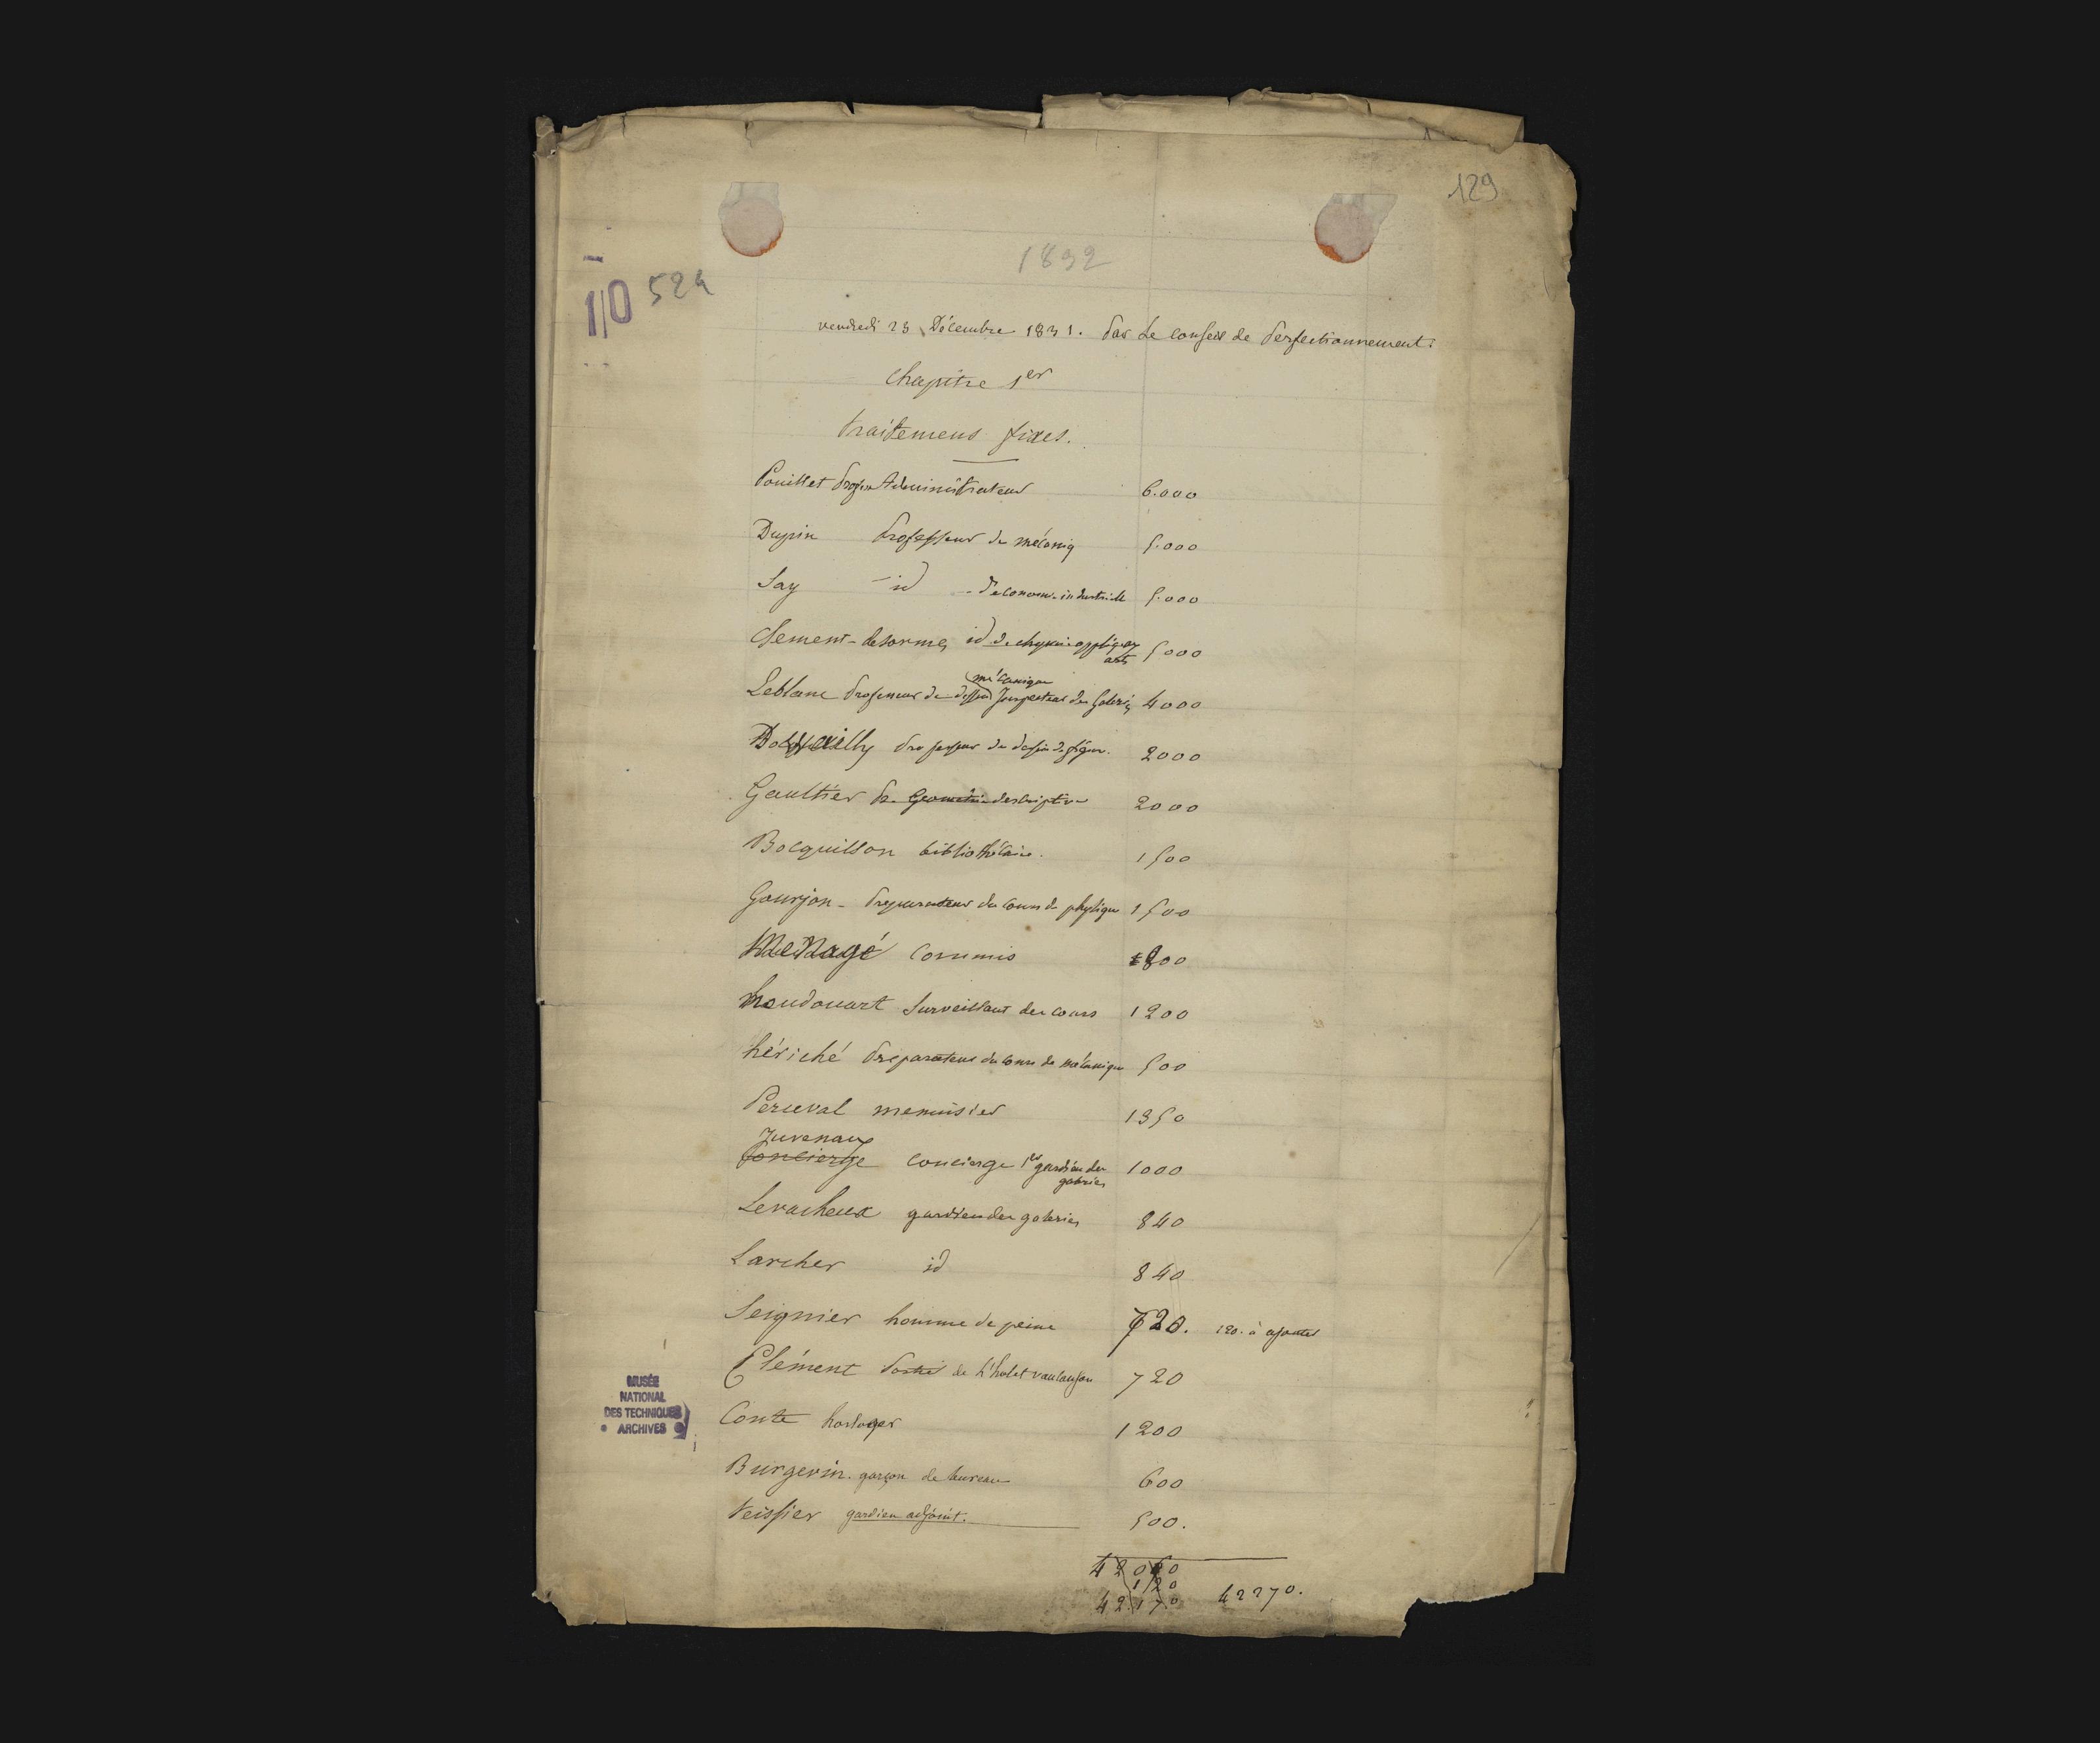 129
1832
110 524
vendredi 23 Décembre 1831. Par Le conseil de Perfectionnement.
Chapitre 1er
traitemens fixes.
Pouillet Profr Administrateur 6.000
Dupin Professeur de mécaniq 5.000
Say id d'econom. industrielle 5.000
Clement-desormes id de chymie appliq aux 5000
arts
mécanique
Leblanc Professeur de dessin Inspecteur des Galeries 4000
professeur de dessin de figure. 2000
Gaultier de Géométrie descriptive 2000
Bocquillon bibliothécaire. 1500
Gourjon - Preparateur du Cours de physique 1500
Menagé Commis 1800
houdouart Surveillant des cours 1200
hériché Preparateur du Cours de mécanique 500
Perceval menuisier 1350
Juvenaux
Concierge concierge 1er gardien des 1000
galeries
Levacheux gardien des galeries 840
Larcher id 840
Seignier homme de peine 720. 120. à ajouter
Clément Portier de L'hotel vaucanson 720
Conte horloger 1200
Burgevin. garçon de bureau 600
teissier gardien adjoint. 500.
120
42.170 42270.
MUSÉE
NATIONAL
DES TECHNIQUES
ARCHIVES